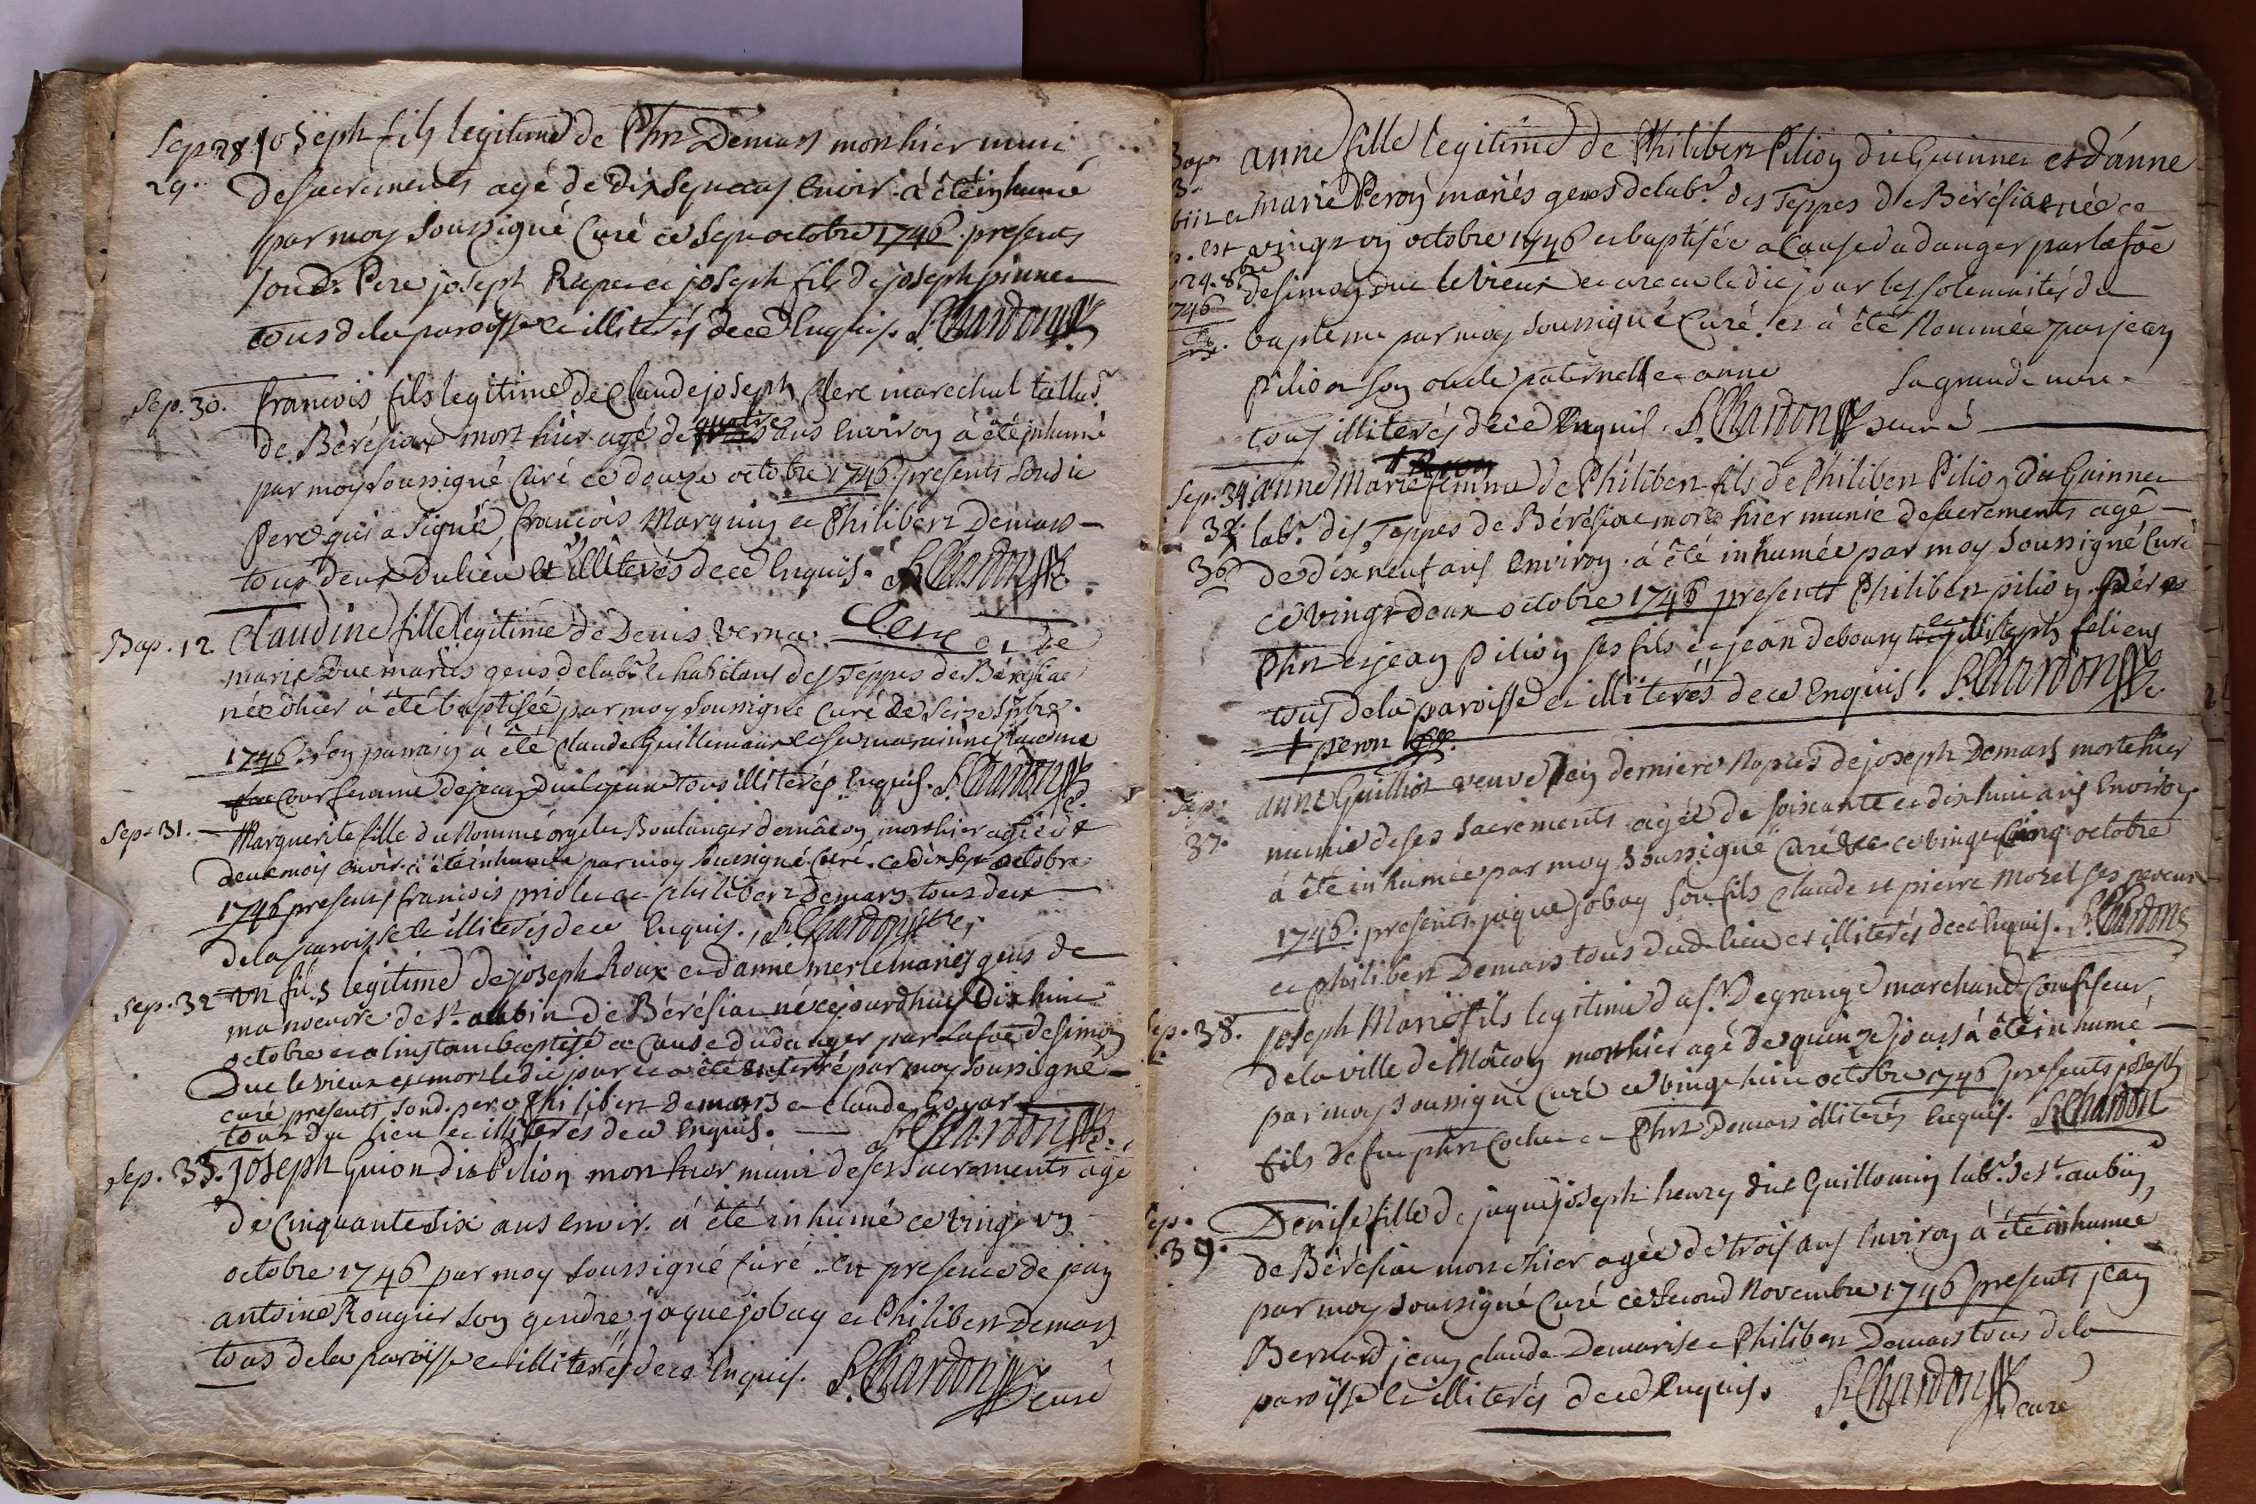 Sep. 28 Joseph fils legitime de Phrt Demars mort hier muni
29. de sacrements agé de dix sept ans envir. à été inhumé
par moy soussigné Curé ce sept octobre 1746. presents
sond. Pere joseph et joseph fils de joseph pinnet
tous de la paroisse et illiterés de ce Enquis. Chardon
Sep. 30. francois fils legitime de Claude joseph Clerc marechal
de Bérésiat mort hier agé de quatre ans Environ à été inhumé
par moy soussigné Curé ce douze octobre 1746. presents sondit
Pere qui a signé, francois Marguin et Philibert Demars
tous deux du lieu et illiterés de ce Enquis. Chardon
Clerc
Bap. 12 Claudine fille legitime de Denis verne et de
marie Duc mariés gens de labr. habitans des Teppes de Bérésiat
née d'hier à été baptisée par moy soussigné Curé ce seize
1746. son parrain à été Claude Guillemaut et sa marainne Claudine
femme de jean tous illiterés Enquis. Chardon
Sep. 31. Marguerite fille du Nommé Boulanger de mâcon, mort hier agée de
deux mois envir. à été inhumée par moy soussigné Curé. ce dix sept octobre
1746 presents francois et philibert Demars tous deux
de la paroisse et illiterés de ce Enquis. Chardon
Sep. 32 un fils legitime de joseph Roux et d'anne merle mariés gens de
manoeuvre de St. aubin de Bérésiat né cejourdhuy dix huit
octobre et a l'instant baptisé a cause du danger par la foë de simon
Duc le vieux et mort ledit jour et a été enterré par moy soussigné
curé presents sond. pere Philibert Demars et Claude
tous du lieu et illiterés de ce Enquis. Chardon
Sep. 33. Joseph Guion dit Pilion mort hier muni de ses sacrements agé
de Cinquante six ans envir. à été inhumé ce vingt un
octobre 1746 par moy soussigné Curé en presence de jean
antoine Rougier son gendre, jaque jobay et Philibert Demars
tous de la paroisse et illiterés de ce Enquis. Chardon
curé
Bap. anne fille legitime de Philibert Pilion dit Guinnet et d'anne
marie Peron mariés gens de labr. des Teppes de Bérésiat née ce
est vingt un octobre 1746 et baptisée a Cause du danger par la foë
24. 8bre de simon Duc le vieux et a reçu ledit jour les solemnités du
1746 bapteme par moy soussigné Curé. et à été Nommée par jean
Pilion son oncle paternelle et anne sa grande mere
tous illiterés de ce Enquis. Chardon curé
Sep. 34 janne Marie femme de Philibert fils de Philibert Pilion dit Guinnet
labr. des Teppes de Bérésiat morte hier munie de sacrements agé
36 de dix neuf ans Environ. à été inhumée par moy soussigné Curé
ce vingt deux octobre 1746 presents Philibert pilion pére
Phrt et jean Pilion ses fils et jean debourg
tous de la paroisse et illiterés de ce Enquis. Chardon
+ peron
Sep. 37. anne Guilliot veuve en derniere Nopces de joseph Demars morte hier
munie de ses sacrements agée de soixante et dix huit ans Environ
à été inhumée par moy soussigné Curé ce vingt Cinq octobre
1746. presents jaque jobay son fils Claude et pierre Morel ses neveux
et philibert Demars tous dud. lieu et illiterés de ce Enquis. Chardon
Sep. 38. Joseph Marie fils legitime d'a Sr. Degrange marchand Confiseur
de la ville de Mâcon mort hier agé de quinze jours à été inhumé
par moy soussigné Curé ce vingt huit octobre 1746 presents joseph
fils de feu phrt Cochet et Phrt Demars illiterés Enquis. Chardon
Sep. 39. Denise fille de jaque joseph henry dit Guillomin labr. de St. aubin
de Bérésiat morte hier agée de trois ans Environ à été inhumée
par moy soussigné Curé ce second Novembre 1746 presents jean
Bernard jean claude Demarise et Philibert Demars tous de la
paroisse et illiterés de ce Enquis. Chardon
curé